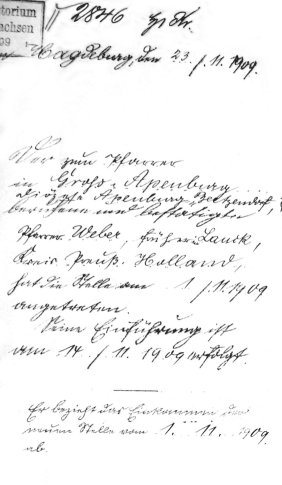 torium
achsen
09
II 2846 Zu Kr.
Magdeburg, den 23./11.1909.
Der zum Pfarrer
in Groß-Apenburg
Diözese Apenburg-Beetzendorf,
berufene und bestätigte
Pfarrer Weber, früher Lauck,
Kreis Preuß. Holland,
hat die Stelle am 1./11.1909
angetreten.
Seine Einführung ist
am 14./11.1909 erfolgt.
Er bezieht das Einkommen der
neuen Stelle vom 1. 11. 1909.
ab.